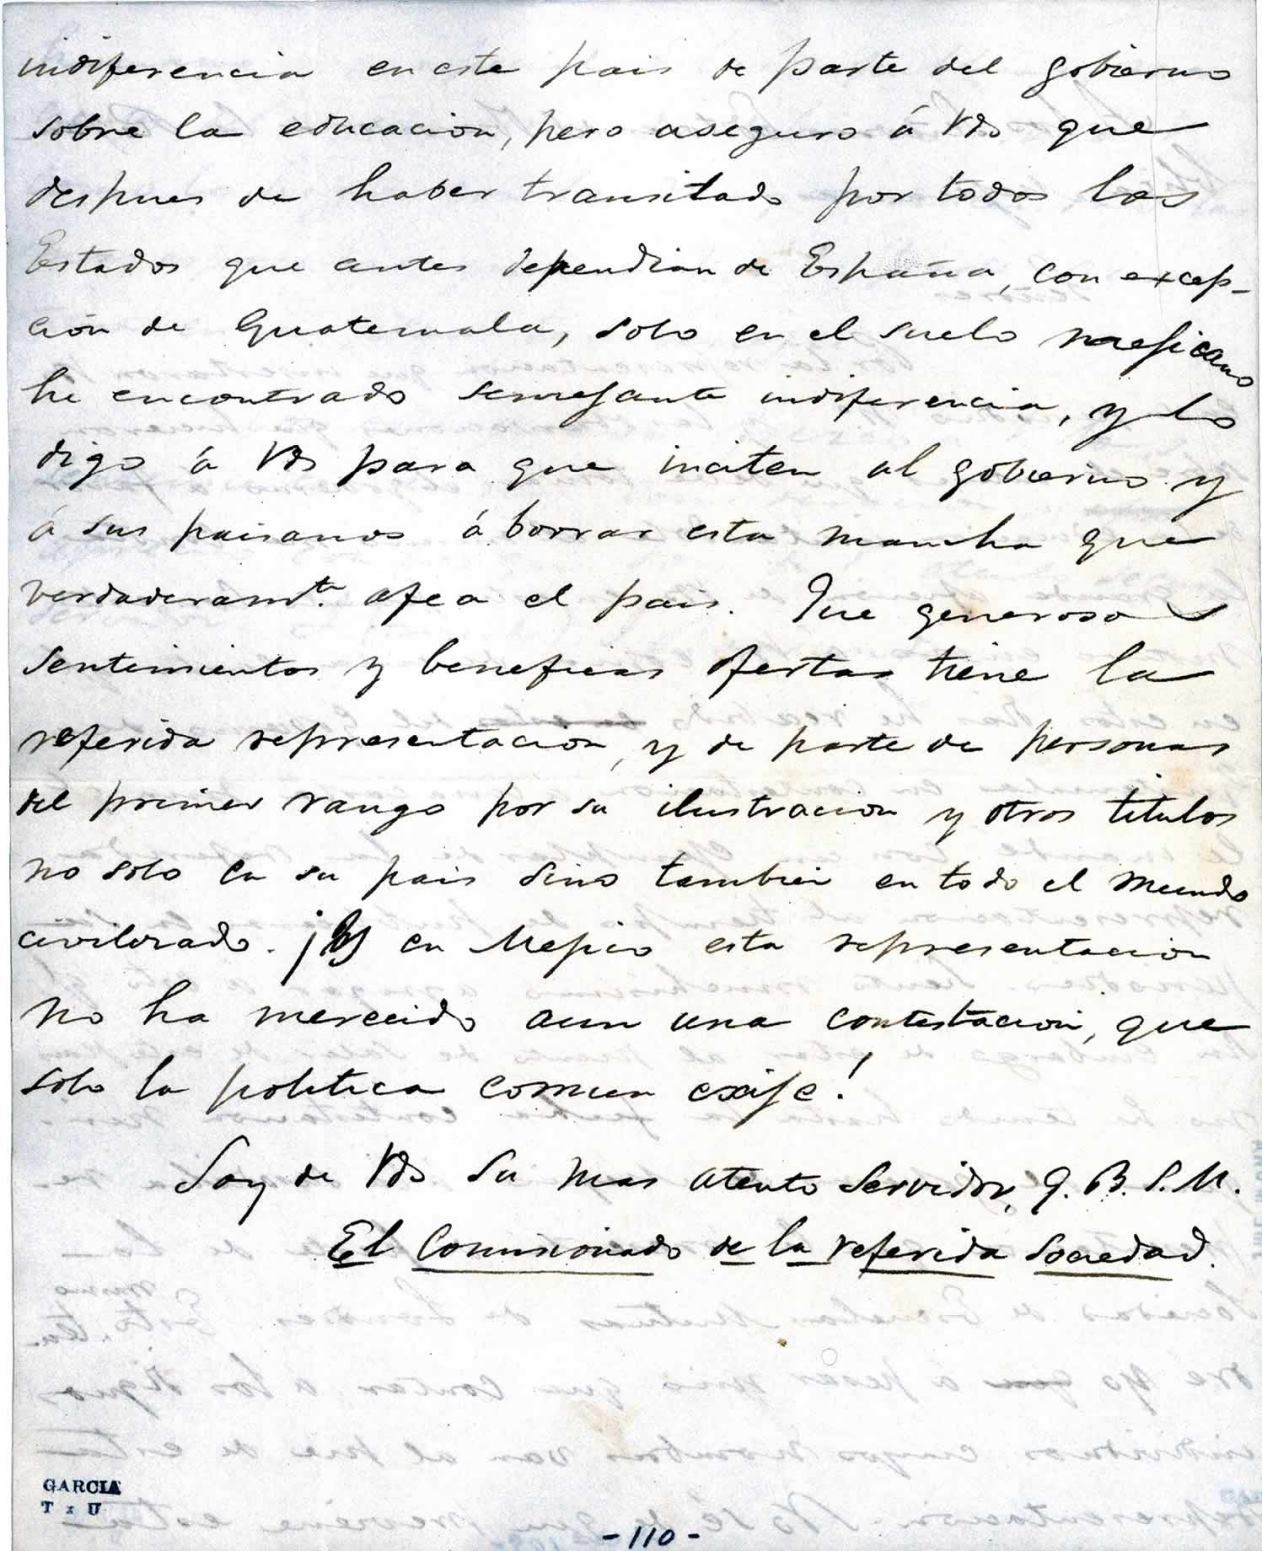 indiferencia en este pais de parte del gobierno
sobre la educacion, pero aseguro á Vds que
despues de haber transitado por todos los
Estados que antes dependian de España, con excep-
cion de Guatemala, solo en el suelo mejicano
he encontrado semejante indiferencia, y lo
digo á Vds para que inciten al gobierno y
á sus paisanos á borrar esta mancha que
verdaderamte. afea el pais. Que generosos
sentimientos y beneficas ofertas tiene la
referida representacion, y de parte de personas
del primer rango por su ilustracion y otros titulos
no solo en su pais sino tambien en todo el mundo
civilizado. ¡Y en Mejico esta representacion
no ha merecido aun una contestacion, que
solo la politica comun exije!
Soy de Vds su mas atento servidor, Q. B. S. M.
El Comisionado de la referida Sociedad.
GARCIA
T x U
- 110 -